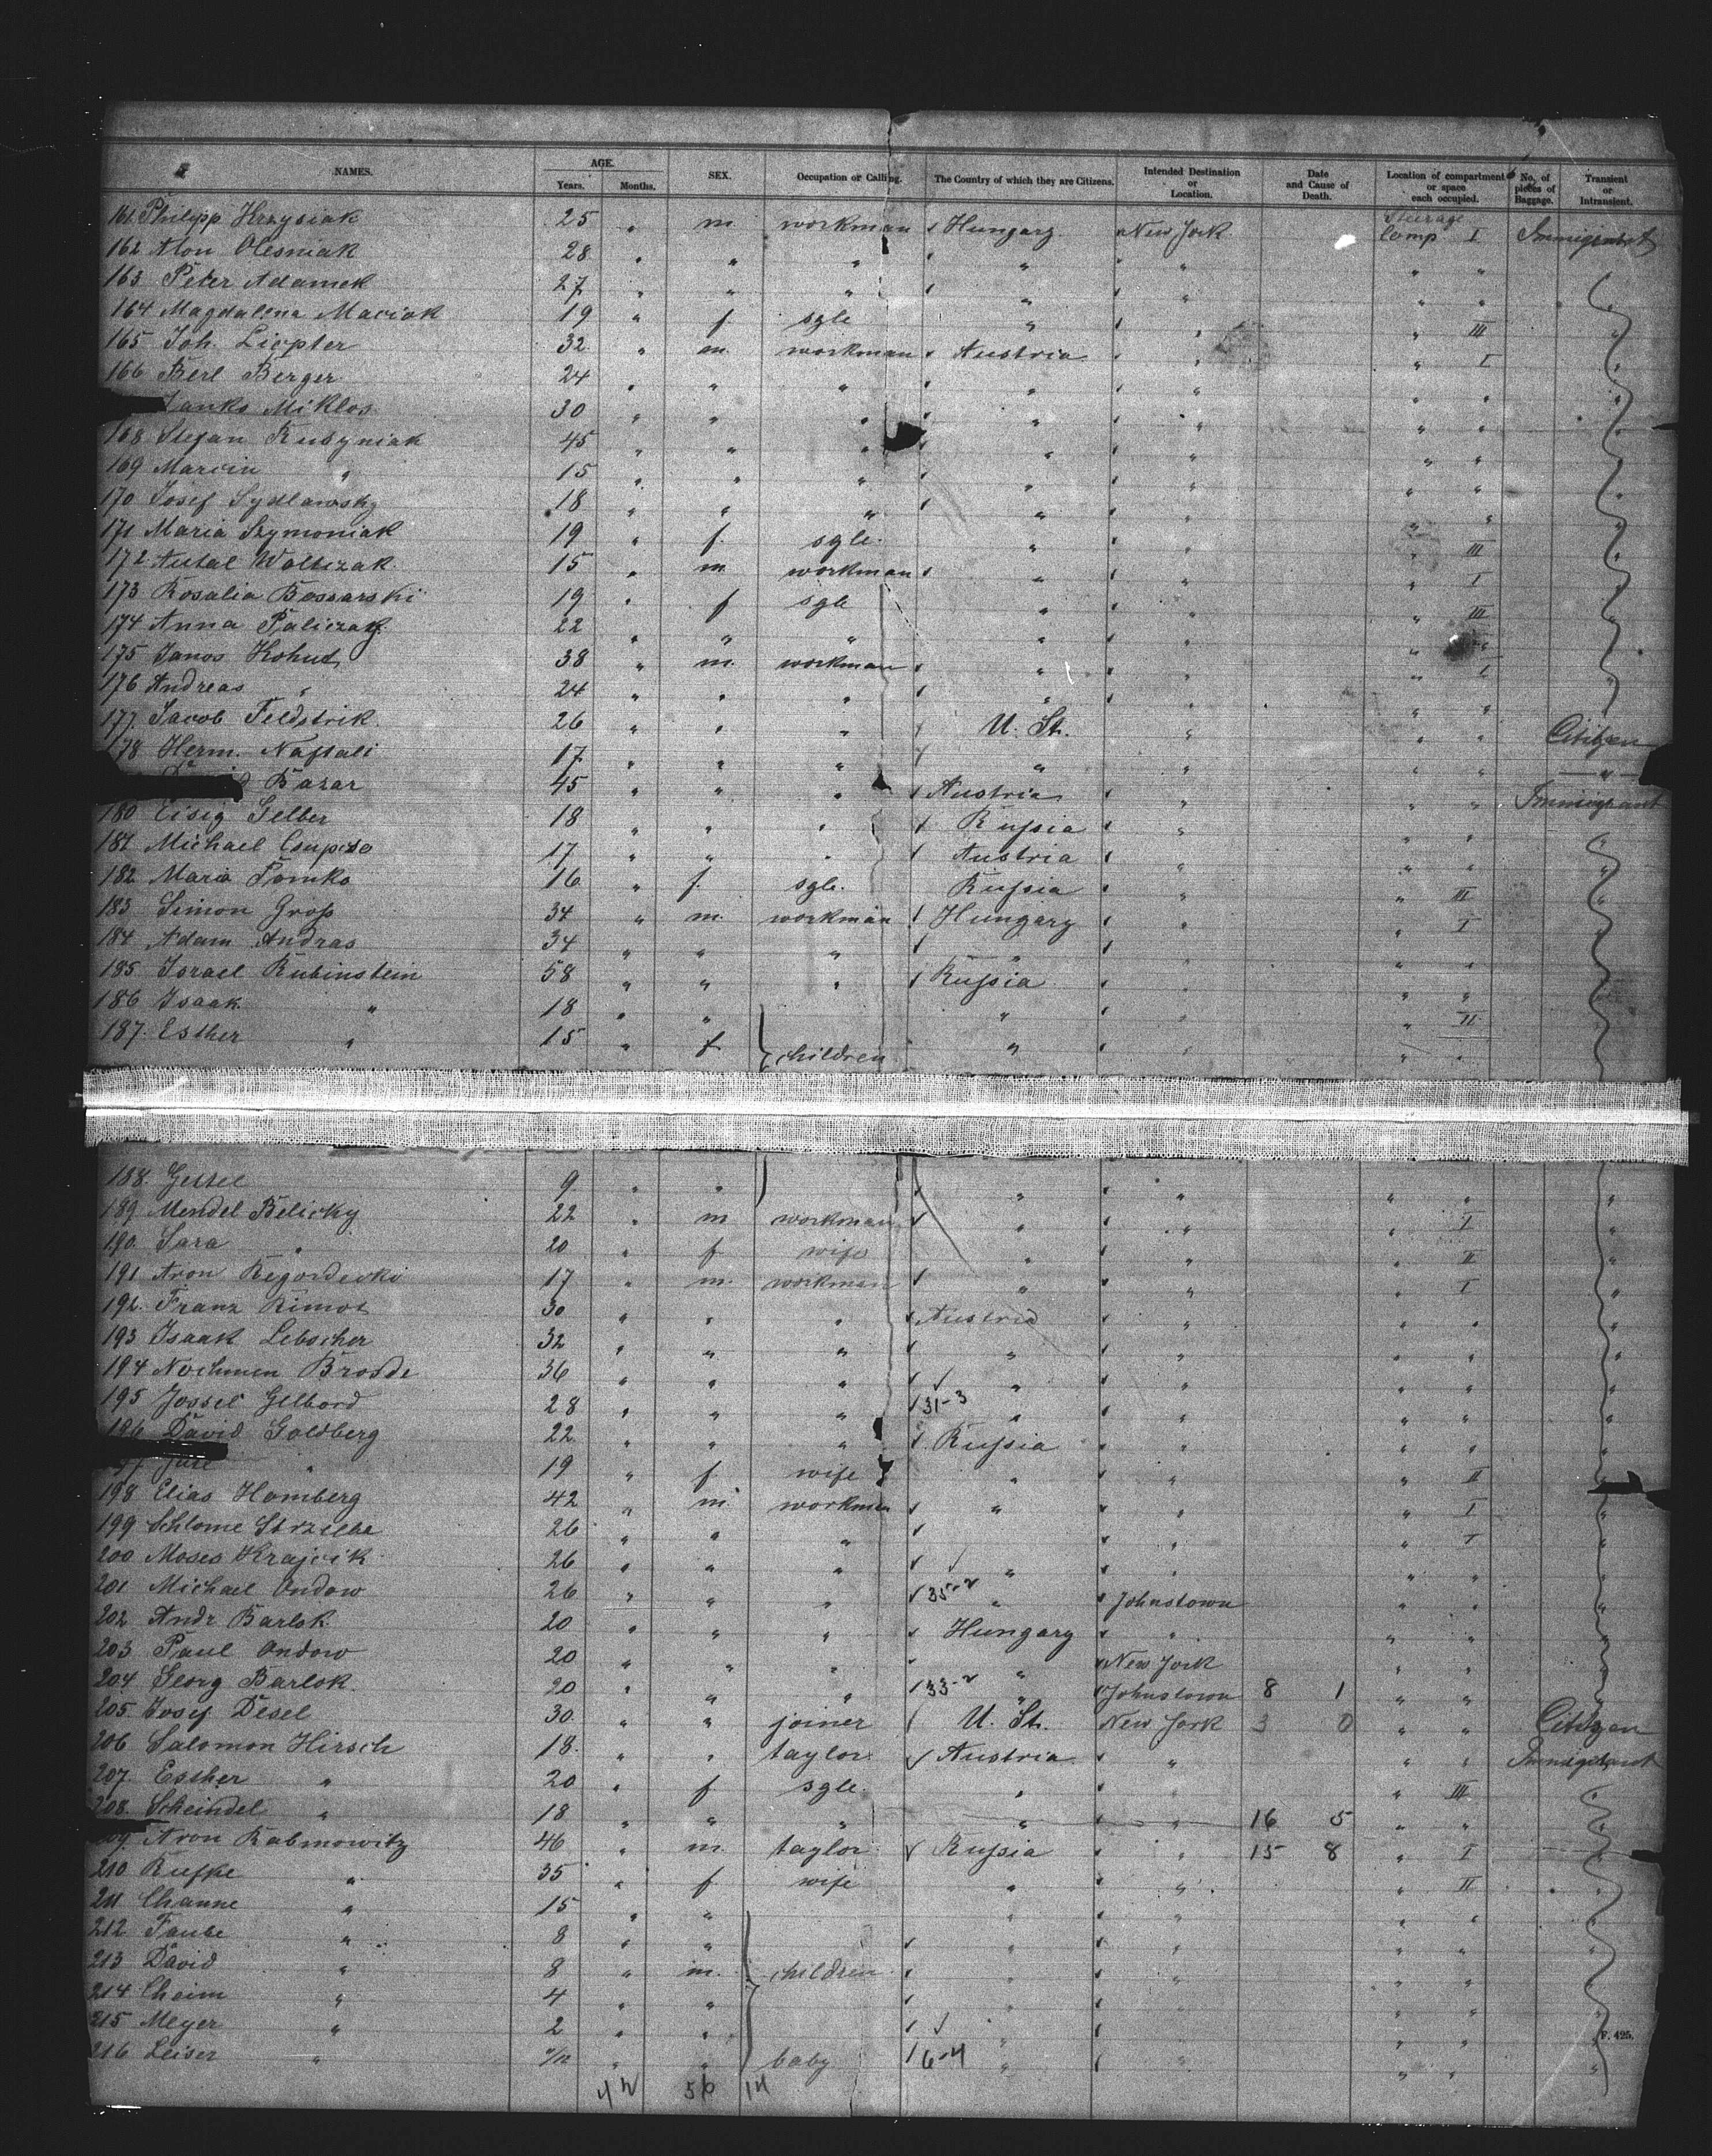 NAMES. AGE. Years. Months. SEX. Occupation or Calling. The Country of which they are Citizens. Intended Destination or Location. Date and Cause of Death. Location of compartment or space each occupied. No. of pieces of Baggage. Transient or Intransient.
161 Philipp Krzysiak 25 " m workman Hungary New York Steerage Comp I Immigrant
162 Alon Olesniak 28 " " " " " " "
163 Peter Adamek 27 " " " " " " "
164 Magdalena Maciak 19 " f sgle " " " III "
165 Joh. Liepter 32 " m. workman Austria " " I "
166 Berl Berger 24 " " " " " " " "
Janko Miklos 30 " " " " " " " "
168 Stefan Kusyniak 45 " " " " " " "
169 Marcin " 15 " " " " " " " "
170 Josef Sydlawsky 18 " " " " " " "
171 Maria Szymoniak 19 " f sgle. " " " III "
172 Antal Woltczak 15 " m workman " " " I "
173 Rosalia Bossarski 19 " f sgle " " " III "
174 Anna Paliczak 22 " " " " " " "
175 Janos Kohut 38 " m. workman " " " I "
176 Andreas " 24 " " " " " " "
177 Jacob Feldstrik 26 " " " U. St. " " " Citizen
178 Herm. Naftali 17 " " " " " " " "
Bazar 45 " " " Austria " " " Immigrant
180 Eisig Gelber 18 " " " Russia " " " "
181 Michael Csupcso 17 " " " Austria " " " "
182 Maria Tomko 16 " f. sgle. Russia " " III "
183 Simon Gross 34 " m. workman Hungary " " I "
184 Adam Andras 34 " " " " " " "
185 Israel Rubinstein 58 " " " Russia " " " "
186 Isaak " 18 " " " " " II
187. Esther " 15 " f children " " " "
188. Gettel 9 " " " " " " "
189 Mendel Belicky 22 " m workman " " " I "
190. Sara " 20 " f wife " " " II "
191 Aron Regordecki 17 " m. workman " " " I "
192. Franz Kimos 30 " " " Austria " " " "
193 Isaak Lebscher 32 " " " " " " " "
194 Nochmen Brosde 36 " " " " " " " "
195 Jossel Gelbord 28 " " " 31-3 " " " " "
196 David Goldberg 22 " " " Russia " " " "
" 19 " f wife " " " II "
198 Elias Homberg 42 " m. workman " " " I "
199 Schlome Strzelbe 26 " " " " " " I "
200 Moses Krajcik 26 " " " " " " " "
201 Michael Ondow 26 " " " 35-2 " Johnstown " " "
202 Andr Barlok 20 " " " Hungary " " " "
203 Paul Ondow 20 " " " " New York " " "
204 Georg Barlok. 20 " " " 33-2 " Johnstown 8 1 " " "
205 Josef Desel 30. " " joiner U. St. New York 3 0 " " Citizen
206 Salomon Hirsch 18. " " taylor Austria " " " Immigrant
207. Esther " 20 " f sgle. " " " III "
208. Scheindel " 18 " " " " " 16 5 " " "
209. Aron Rabinowitz 46 " m. taylor Russia " 15 8 " I "
210 Rufke " 35 " f wife " " " II "
211 Channe " 15 " " " " " "
212 Taube " 8 " " " " " " "
213 David " 8 " m. children " " " "
214 Chaim " 4 " " " " " "
215 Meyer " 2 " " " " " "
216 Leiser " " " baby 6-4 " " " " "
F. 425.
42 56 14